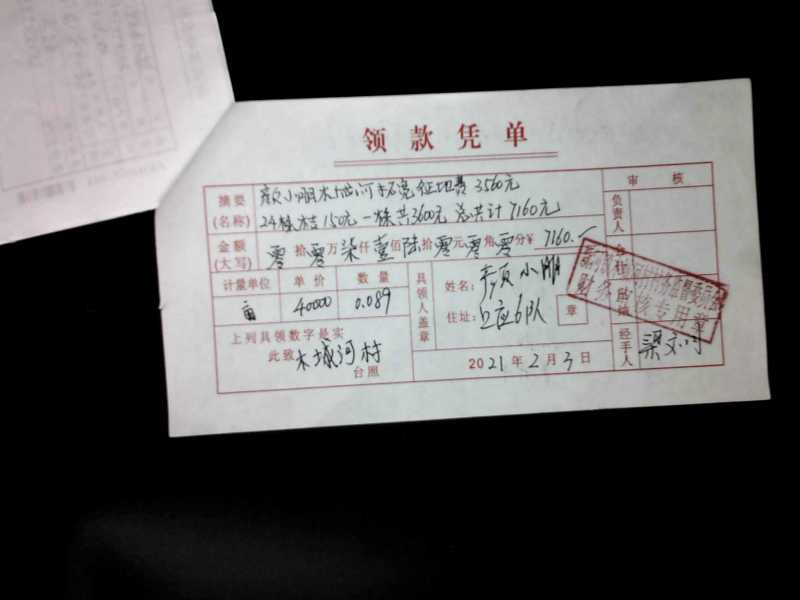 领款凭单
摘要(名称) 颜小明木城河标完征地费3560元
24株桔150元一株共3600元 总共计7160元
审核
负责人
金额(大写) 零拾零万柒仟壹佰陆拾零元零角零分¥7160.
计量单位 单价 数量
亩 40000 0.089
具领人盖章
姓名: 颜小明
住址: 6队
章
上列具领数字是实
此致 木城河村
台照
2021年2月3日
经手人 梁文
专用章